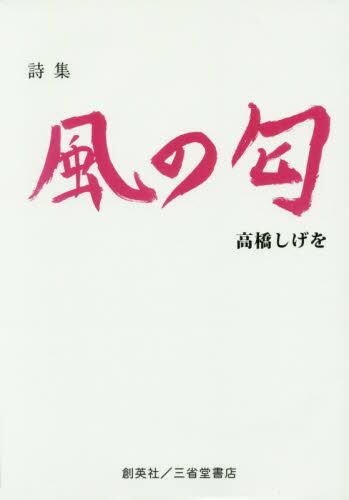 詩集
風の匂
高橋しげを
創英社／三省堂書店